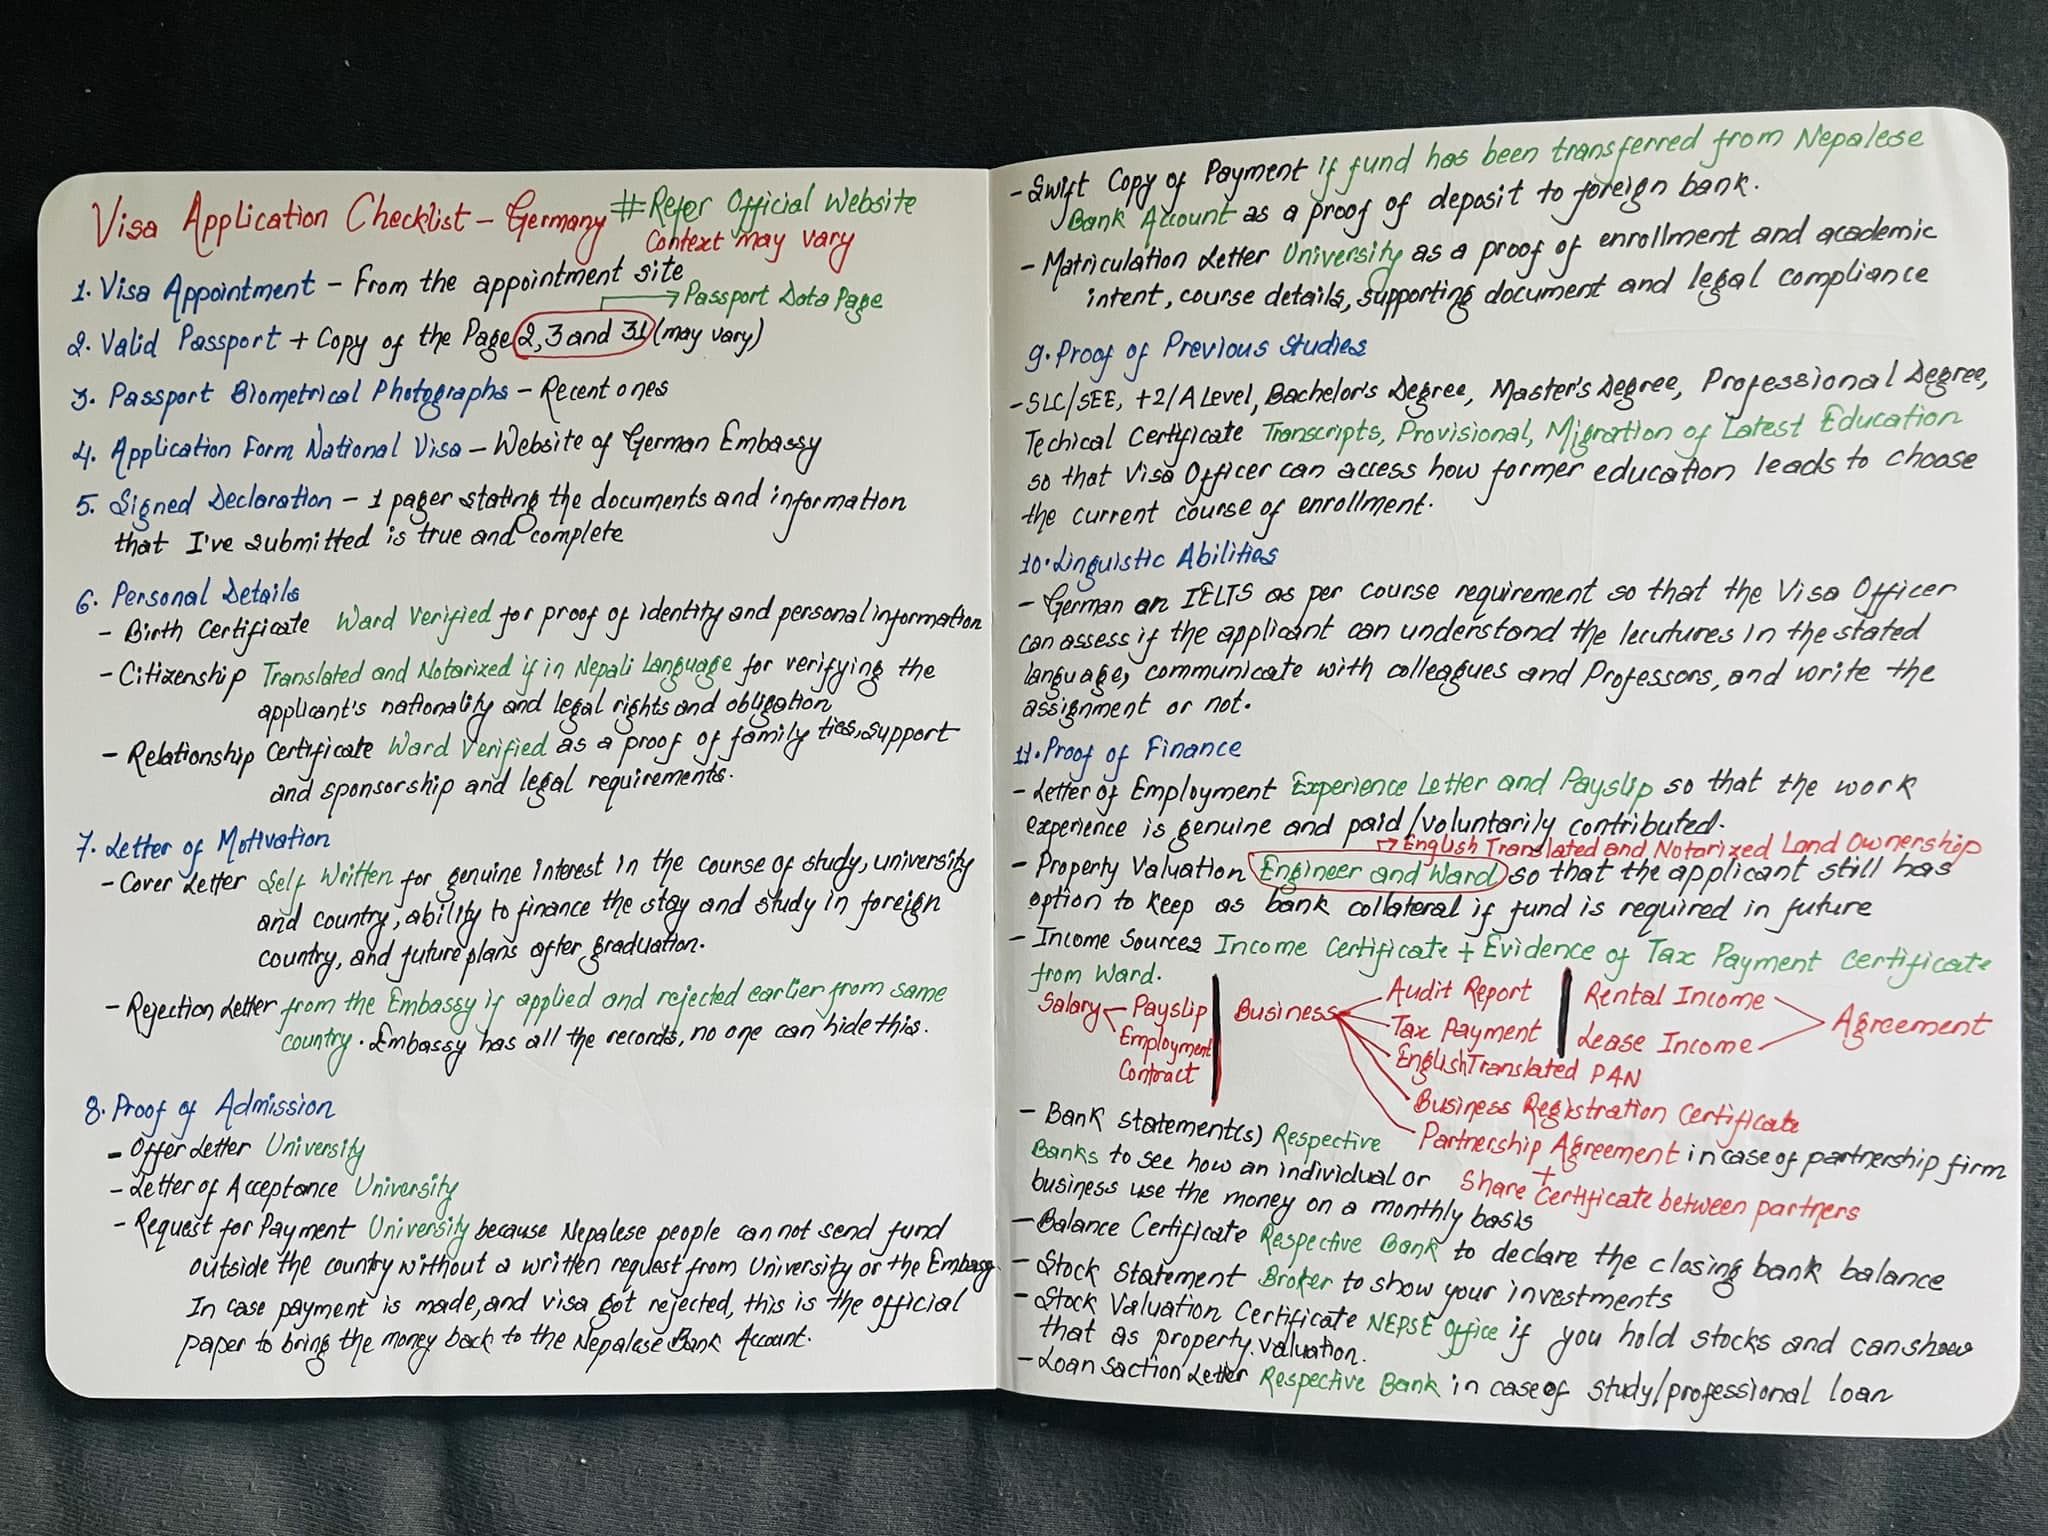 Visa Application Checklist - Germany #Refer Official Website
Context may vary
1. Visa Appointment - From the appointment site
→ Passport Data Page
2. Valid Passport + Copy of the Page 2, 3 and 31 (may vary)
3. Passport Biometrical Photographs - Recent ones
4. Application Form National Visa - Website of German Embassy
5. Signed Declaration - 1 pager stating the documents and information
that I've submitted is true and complete
6. Personal Details
- Birth Certificate Ward Verified for proof of identity and personal information
- Citizenship Translated and Notarized if in Nepali Language for verifying the
applicant's nationality and legal rights and obligation
- Relationship Certificate Ward Verified as a proof of family ties, support
and sponsorship and legal requirements.
7. Letter of Motivation
- Cover Letter Self Written for genuine interest in the course of study, university
and country, ability to finance the stay and study in foreign
country, and future plans after graduation.
- Rejection Letter from the Embassy if applied and rejected earlier from same
country. Embassy has all the records, no one can hide this.
8. Proof of Admission
- Offer Letter University
- Letter of Acceptance University
- Request for Payment University because Nepalese people can not send fund
outside the country without a written request from University or the Embassy
In case payment is made, and visa got rejected, this is the official
paper to bring the money back to the Nepalese Bank Account.
- Swift Copy of Payment if fund has been transferred from Nepalese
Bank Account as a proof of deposit to foreign bank.
- Matriculation Letter University as a proof of enrollment and academic
intent, course details, supporting document and legal compliance
9. Proof of Previous Studies
- SLC/SEE, +2/A Level, Bachelor's Degree, Master's Degree, Professional Degree,
Techical Certificate Transcripts, Provisional, Migration of Latest Education
so that Visa Officer can access how former education leads to choose
the current course of enrollment.
10. Linguistic Abilities
- German an IELTS as per course requirement so that the Visa Officer
can assess if the applicant can understand the lecutures in the stated
language, communicate with colleagues and Professors, and write the
assignment or not.
11. Proof of Finance
- Letter of Employment Experience Letter and Payslip so that the work
experience is genuine and paid/voluntarily contributed.
→ English Translated and Notarized Land Ownership
- Property Valuation Engineer and Ward so that the applicant still has
option to keep as bank collateral if fund is required in future
- Income Sources Income Certificate + Evidence of Tax Payment Certificate
from Ward.
Salary Payslip
Employment
Contract
Business Audit Report
Tax Payment
English Translated PAN
Business Registration Certificate
Partnership Agreement in case of partnership firm
+
Share Certificate between partners
Rental Income
Lease Income
Agreement
- Bank Statement(s) Respective
Banks to see how an individual or
business use the money on a monthly basis
- Balance Certificate Respective Bank to declare the closing bank balance
- Stock Statement Broker to show your investments
- Stock Valuation Certificate NEPSE Office if you hold stocks and can show
that as property valuation.
- Loan Saction Letter Respective Bank in case of study/professional loan